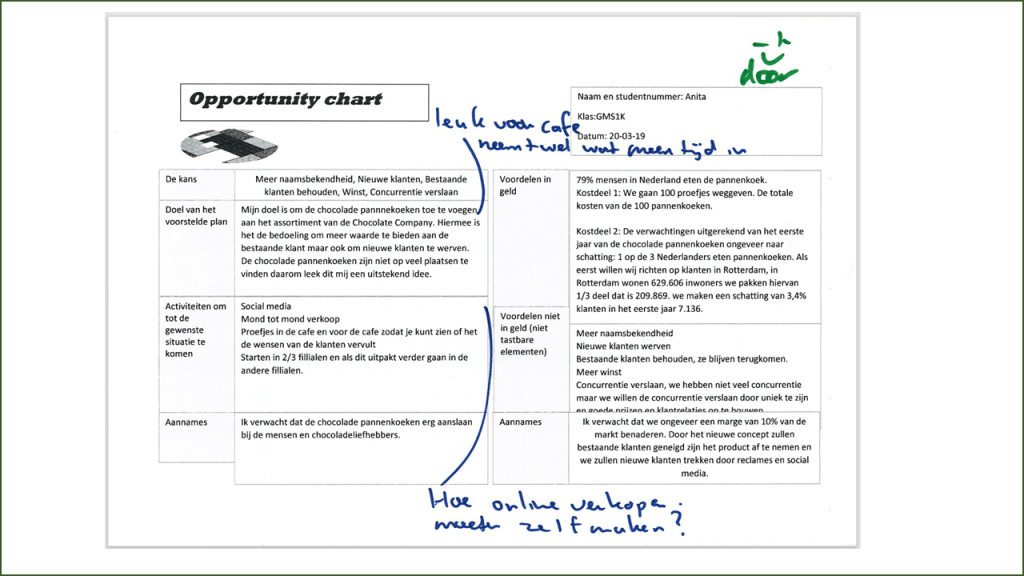 door
Opportunity chart
Naam en studentnummer: Anita
Klas:GMS1K
Datum: 20-03-19
leuk voor cafe
neemt wel wat meer tijd in
De kans
Meer naamsbekendheid, Nieuwe klanten, Bestaande
klanten behouden, Winst, Concurrentie verslaan
Doel van het
voorstelde plan
Mijn doel is om de chocolade pannnekoeken toe te voegen
aan het assortiment van de Chocolate Company. Hiermee is
het de bedoeling om meer waarde te bieden aan de
bestaande klant maar ook om nieuwe klanten te werven.
De chocolade pannenkoeken zijn niet op veel plaatsen te
vinden daarom leek dit mij een uitstekend idee.
Activiteiten om
tot de
gewenste
situatie te
komen
Social media
Mond tot mond verkoop
Proefjes in de cafe en voor de cafe zodat je kunt zien of het
de wensen van de klanten vervult
Starten in 2/3 fillialen en als dit uitpakt verder gaan in de
andere fillialen.
Aannames
Ik verwacht dat de chocolade pannenkoeken erg aanslaan
bij de mensen en chocoladeliefhebbers.
Voordelen in
geld
79% mensen in Nederland eten de pannenkoek.
Kostdeel 1: We gaan 100 proefjes weggeven. De totale
kosten van de 100 pannenkoeken.
Kostdeel 2: De verwachtingen uitgerekend van het eerste
jaar van de chocolade pannenkoeken ongeveer naar
schatting: 1 op de 3 Nederlanders eten pannenkoeken. Als
eerst willen wij richten op klanten in Rotterdam, in
Rotterdam wonen 629.606 inwoners we pakken hiervan
1/3 deel dat is 209.869. we maken een schatting van 3,4%
klanten in het eerste jaar 7.136.
Voordelen niet
in geld (niet
tastbare
elementen)
Meer naamsbekendheid
Nieuwe klanten werven
Bestaande klanten behouden, ze blijven terugkomen.
Meer winst
Concurrentie verslaan, we hebben niet veel concurrentie
maar we willen de concurrentie verslaan door uniek te zijn
en goede prijzen en klantrelaties op te bouwen
Aannames
Ik verwacht dat we ongeveer een marge van 10% van de
markt benaderen. Door het nieuwe concept zullen
bestaande klanten geneigd zijn het product af te nemen en
we zullen nieuwe klanten trekken door reclames en social
media.
Hoe online verkopen.
moeten zelf maken?